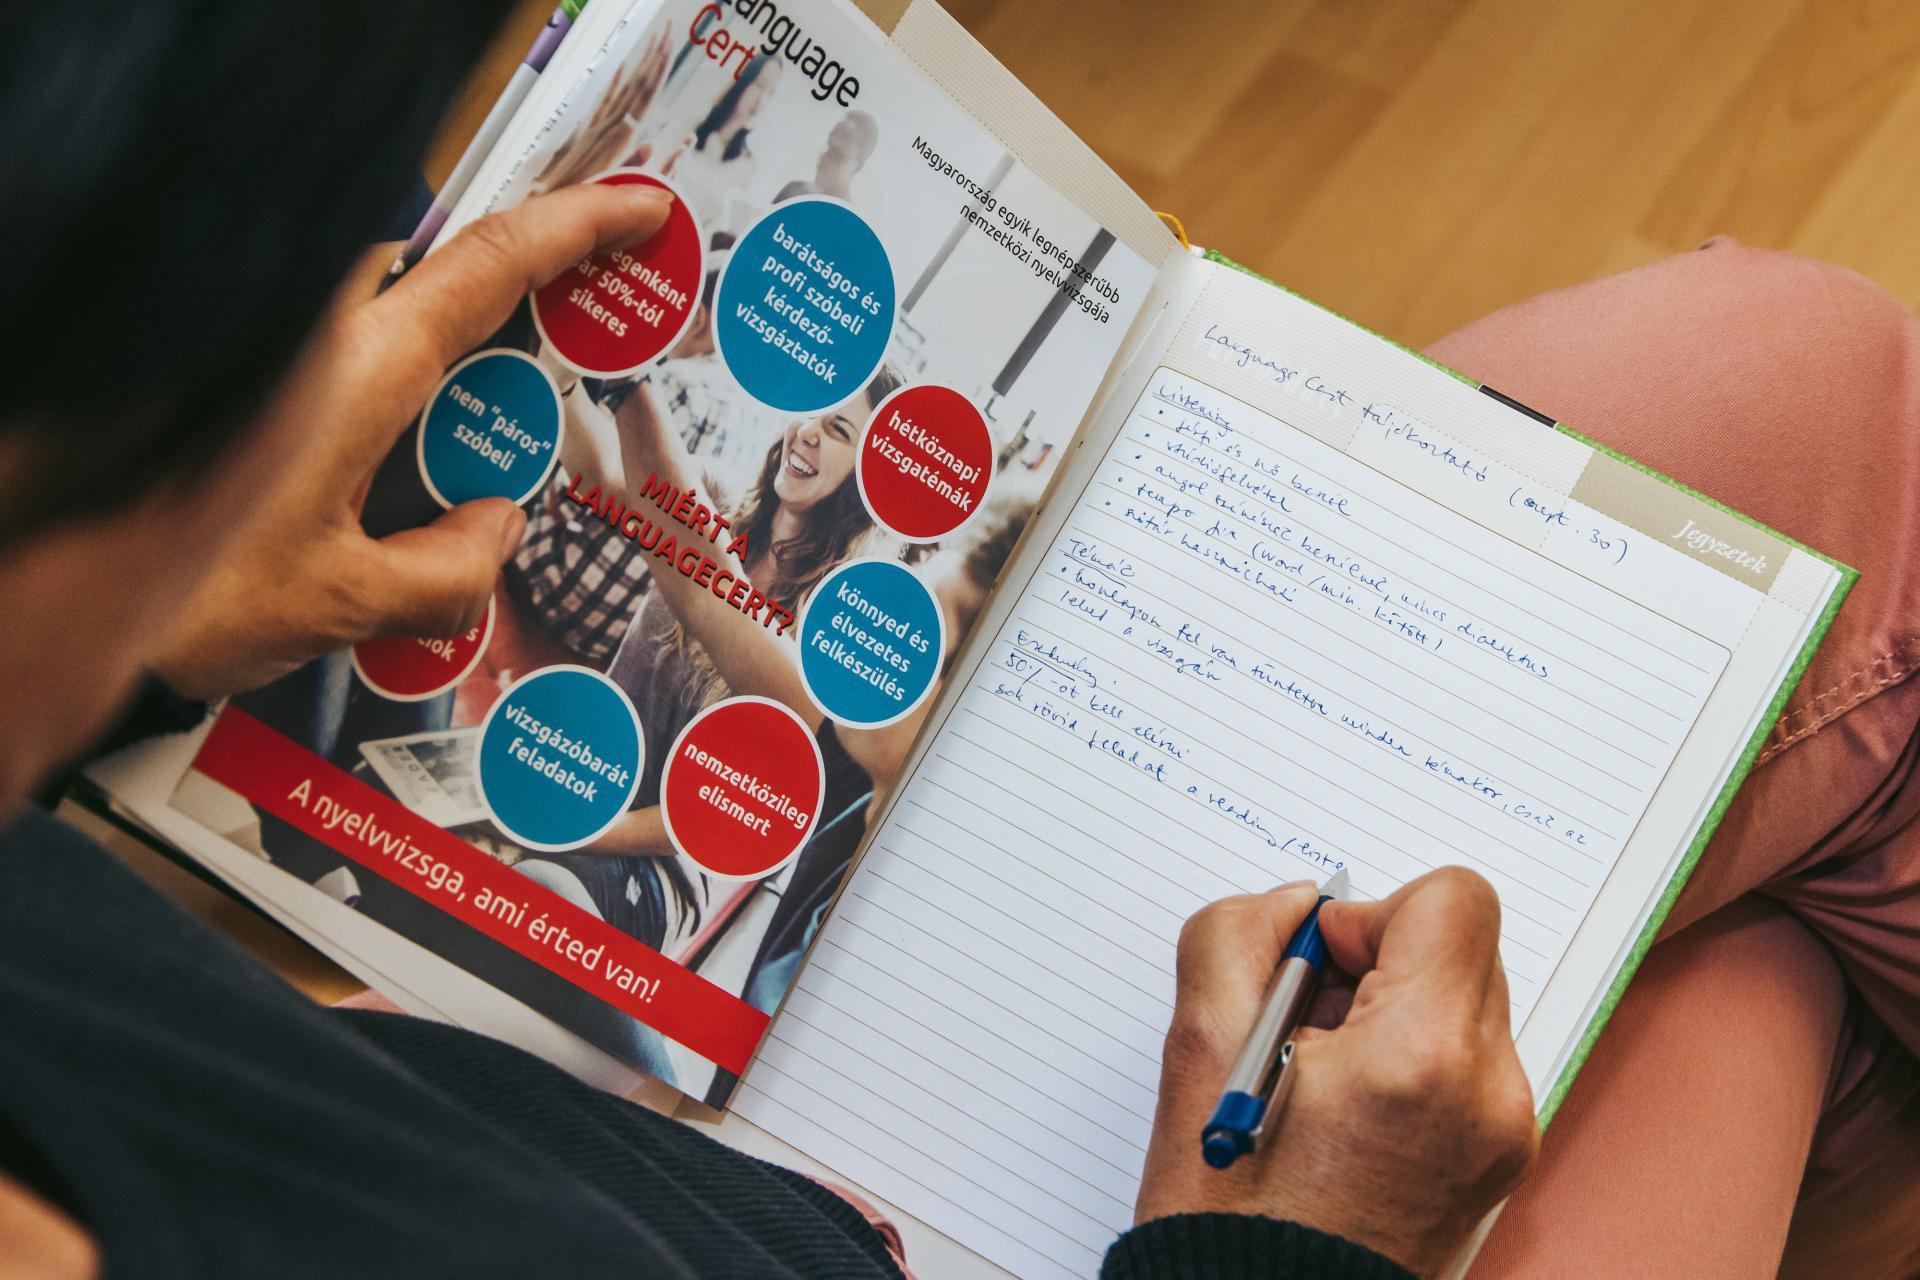 Language
Cert
Magyarország egyik legnépszerűbb
nemzetközi nyelvvizsgája
50%-tól
sikeres
barátságos és
profi szóbeli
kérdező-
vizsgáztatók
nem "páros"
szóbeli
hétköznapi
vizsgatémák
MIÉRT A
LANGUAGECERT?
könnyed és
élvezetes
felkészülés
vizsgázóbarát
feladatok
nemzetközileg
elismert
A nyelvvizsga, ami érted van!
Jegyzetek
Language Cert tájékoztató (szept. 30)
Listening
• férfi és nő beszél
• stúdiófelvétel
• angol színészek beszélnek, nincs dialektus
• tempo fix (word/min. között)
• szótár használható
Témák
• honlapon fel van tüntetve minden témakör, csak az
lehet a vizsgán
Eredmény
50%-ot kell elérni
sok rövid feladat a reading/